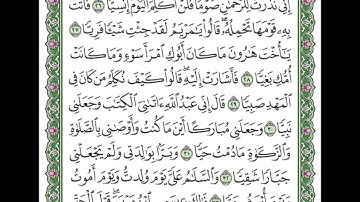 إِنِّي نَذَرْتُ لِلرَّحْمَٰنِ صَوْمًا فَلَنْ أُكَلِّمَ ٱلْيَوْمَ إِنسِيًّا ٢٦ فَأَتَتْ
بِهِۦ قَوْمَهَا تَحْمِلُهُۥ ۖ قَالُوا۟ يَٰمَرْيَمُ لَقَدْ جِئْتِ شَيْـًٔا فَرِيًّا ٢٧
يَٰٓأُخْتَ هَٰرُونَ مَا كَانَ أَبُوكِ ٱمْرَأَ سَوْءٍ وَمَا كَانَتْ
أُمُّكِ بَغِيًّا ٢٨ فَأَشَارَتْ إِلَيْهِ ۖ قَالُوا۟ كَيْفَ نُكَلِّمُ مَن كَانَ فِي
ٱلْمَهْدِ صَبِيًّا ٢٩ قَالَ إِنِّي عَبْدُ ٱللَّهِ ءَاتَىٰنِيَ ٱلْكِتَٰبَ وَجَعَلَنِي
نَبِيًّا ٣٠ وَجَعَلَنِي مُبَارَكًا أَيْنَ مَا كُنتُ وَأَوْصَٰنِي بِٱلصَّلَوٰةِ
وَٱلزَّكَوٰةِ مَا دُمْتُ حَيًّا ٣١ وَبَرًّۢا بِوَٰلِدَتِي وَلَمْ يَجْعَلْنِي
جَبَّارًا شَقِيًّا ٣٢ وَٱلسَّلَٰمُ عَلَيَّ يَوْمَ وُلِدتُّ وَيَوْمَ أَمُوتُ